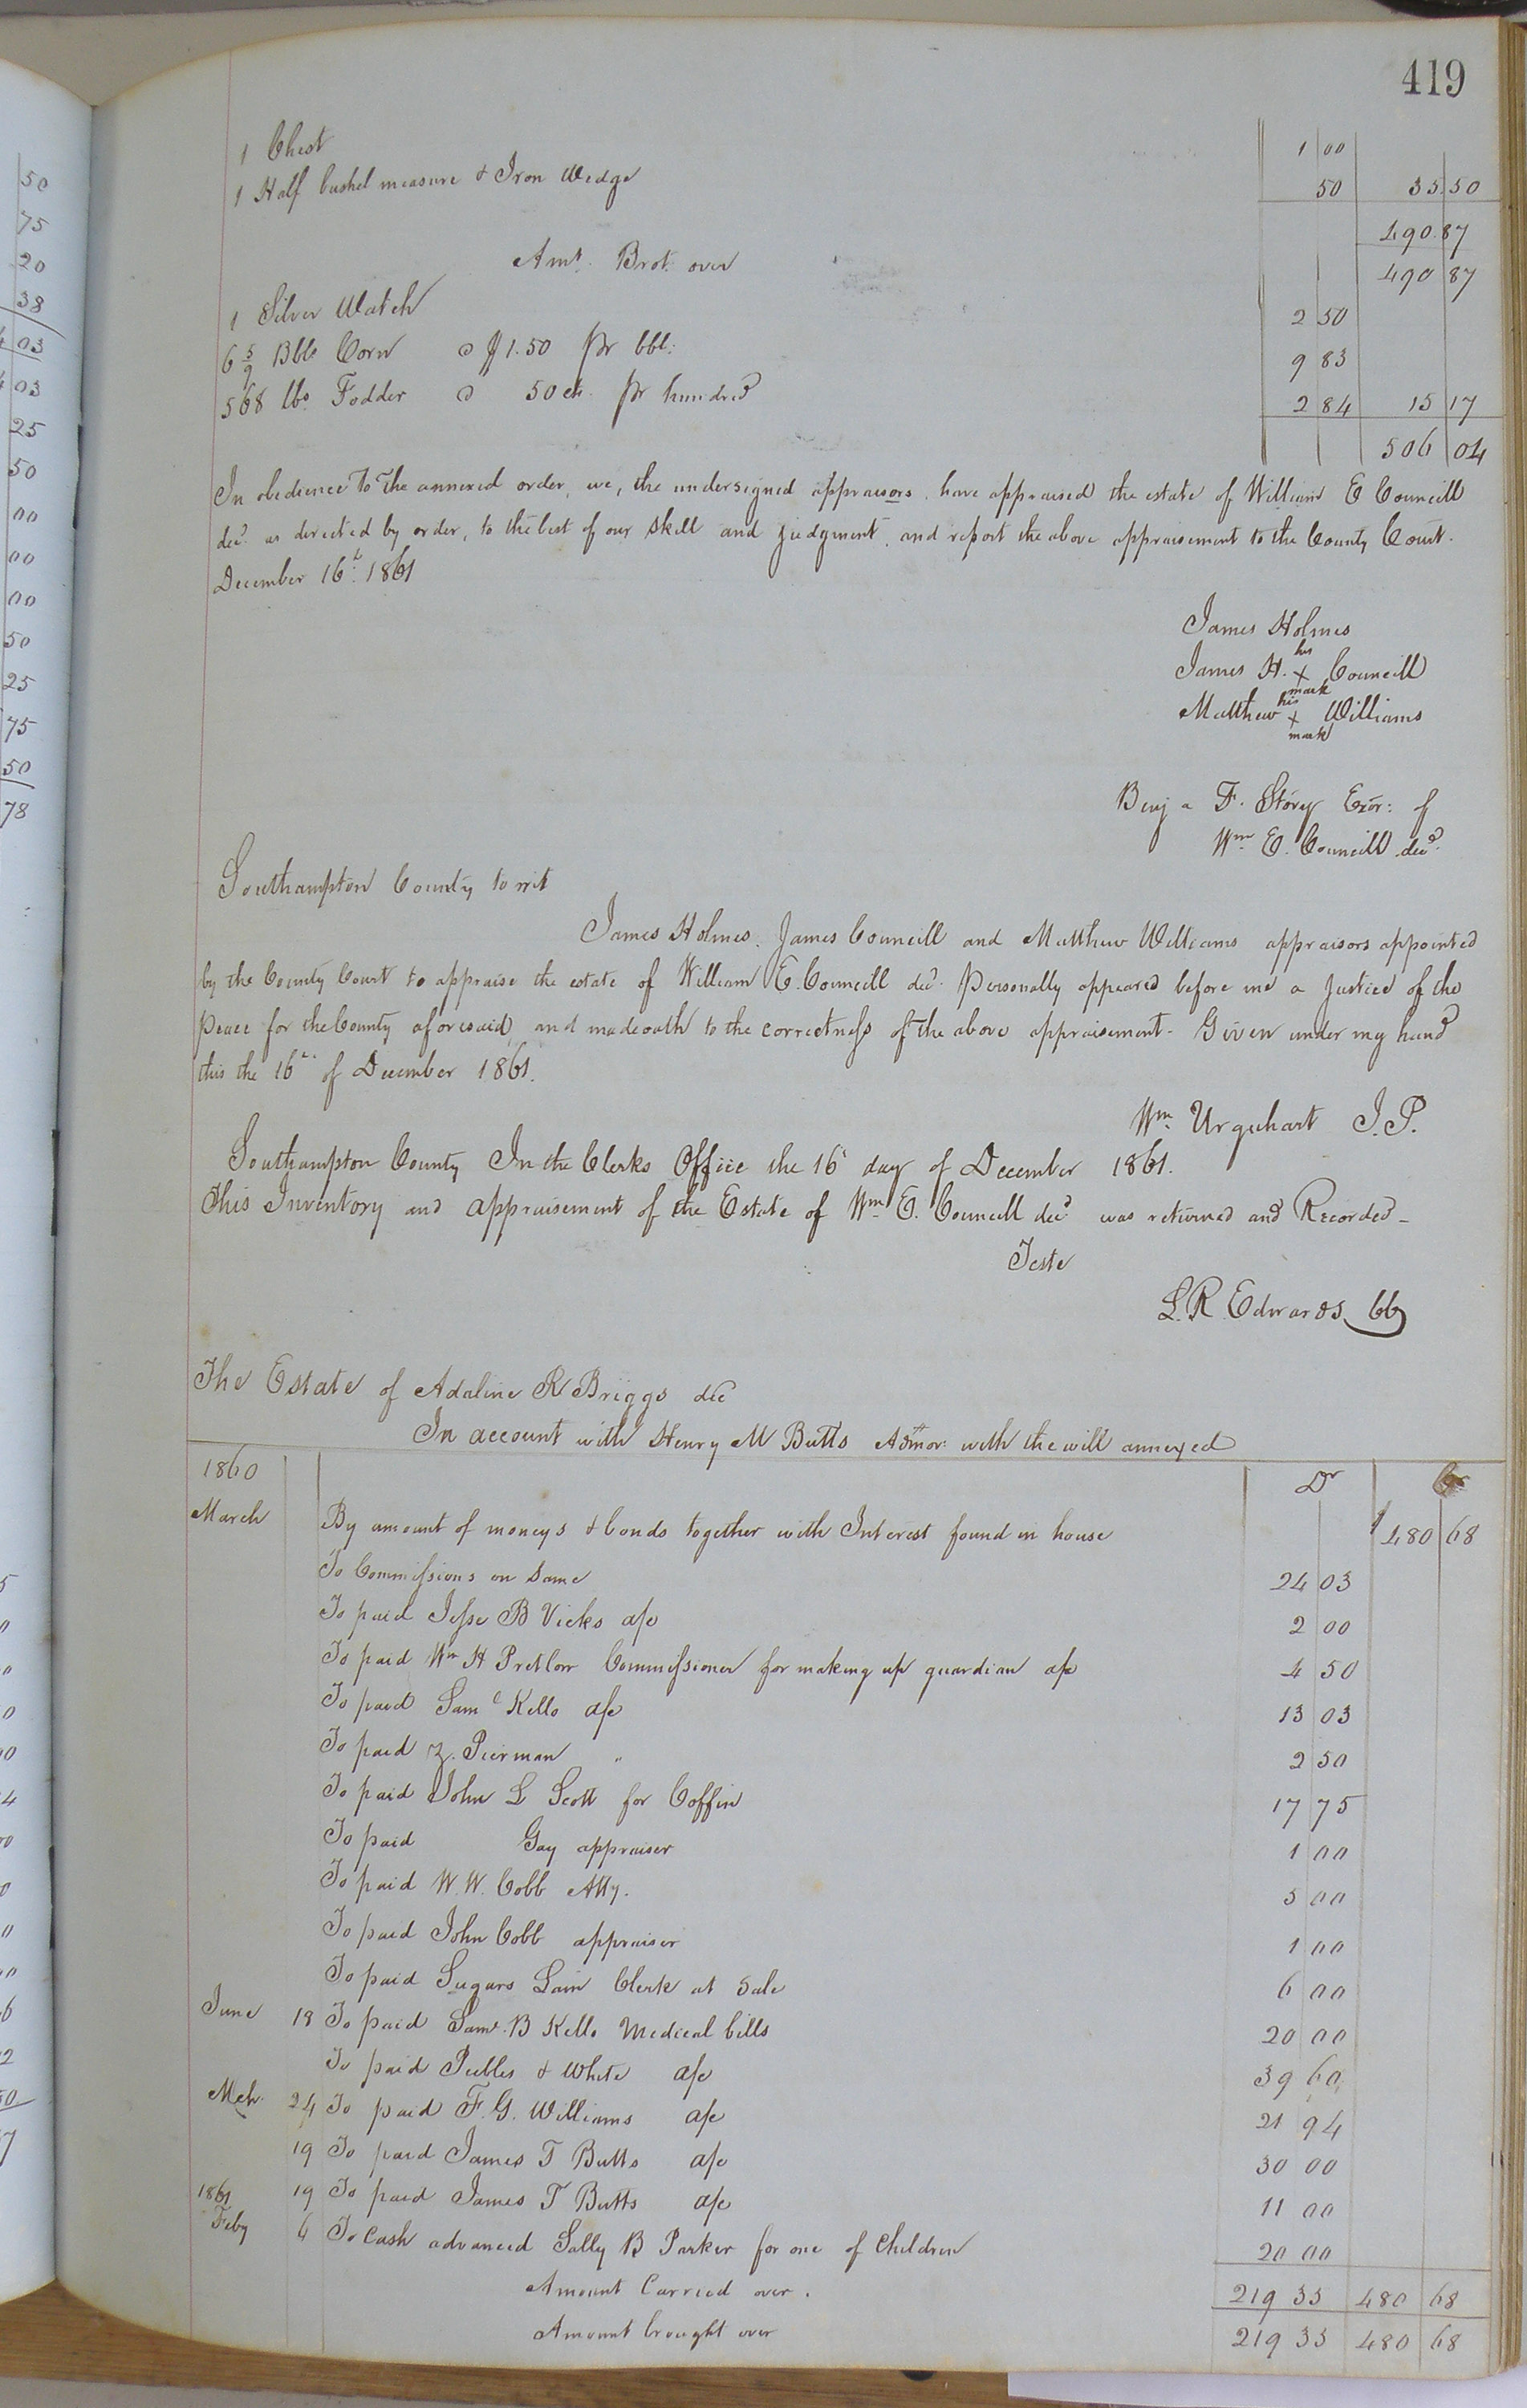 419
1 Chest 1 00
1 Half bushel measure & Iron Wedge 50 35 50
490.87
Amt. Brot. over 490 87
1 Silver Watch 2 50
6 5/9 Bbls Corn @ $1.50 pr bbl: 9 83
568 lbs Fodder @ 50 cts. pr hundred 2 84 15 17
506 04
In obedience to the annexed order, we, the undersigned appraisors, have appraised the estate of William E Councill
decd. as directed by order, to the best of our skill and judgment, and report the above appraisement to the County Court.
December 16th 1861
James Holmes
his
James H. X Councill
mark
his
Matthew X Williams
mark
Benja F. Story Exor: of
Wm E. Councill decd.
Southampton County to wit
James Holmes, James Councill and Matthew Williams appraisors appointed
by the County Court to appraise the estate of William E. Councill decd. Personally appeared before me a Justice of the
Peace for the County aforesaid, and made oath to the correctness of the above appraisement. Given under my hand
this the 16th of December 1861.
Wm Urquhart J.P.
Southampton County In the Clerks Office the 16th day of December 1861.
This Inventory and appraisement of the Estate of Wm E. Councill decd was returned and Recorded-
Teste
L.R. Edwards CC
The Estate of Adaline R Briggs dec
In account with Henry M Butts Admor. with the will annexed
1860 Dr Cr
March By amount of moneys & bonds together with Interest found in house $480 68
To Commissions on same 24 03
To paid Jesse B Vicks a/c 2 00
To paid Wm H Pretlow Commissioner for making up guardian a/c 4 50
To paid Saml Kello a/c 13 03
To paid Z. Pierman " 2 50
To paid John L Scott for Coffin 17 75
To paid Gay appraiser 1 00
To paid W.W. Cobb Atty. 5 00
To paid John Cobb appraiser 1 00
To paid Sugars Lain Clerk at Sale 6 00
June 18 To paid Saml. B Kello Medical bills 20 00
To paid Peebles & White a/c 39 60
Mch. 24 To paid F.G. Williams a/c 21 94
19 To paid James T Butts a/c 30 00
1861 19 To paid James T Butts a/c 11 00
Feby 6 To Cash advanced Sally B Parker for one of Children 20 00
Amount Carried over. 219 35 480 68
Amount brought over 219 35 480 68